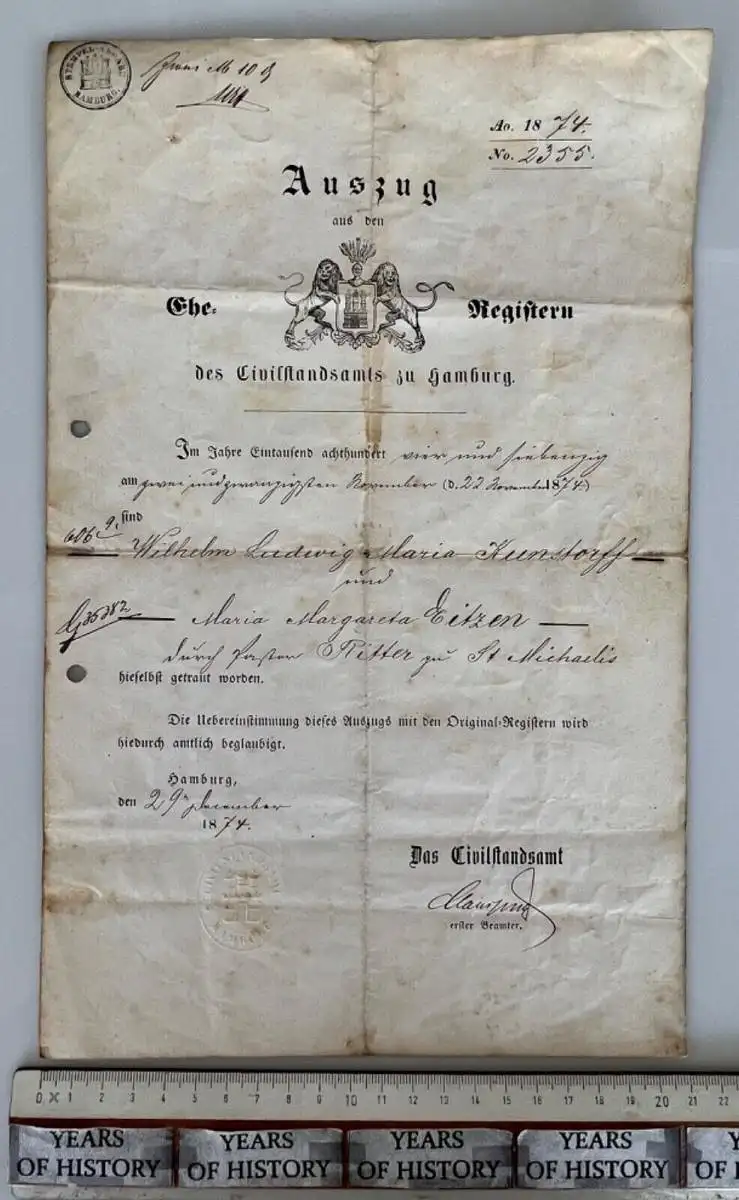 STEMPEL-ABGABE
HAMBURG.
10
Ao. 1874.
No. 2355.
Auszug
aus den
Ehe- Registern
des Civilstandsamts zu Hamburg.
Im Jahre Eintausend achthundert vier und siebenzig
am zwei und zwanzigsten November (d. 22 November 1874)
sind
Wilhelm Ludwig Maria Kunstorff
und
Maria Margareta Eitzen
durch Pastor Ritter zu St Michaelis
hieselbst getraut worden.
Die Uebereinstimmung dieses Auszugs mit den Original-Registern wird
hiedurch amtlich beglaubigt.
Hamburg,
den 29n December
1874.
Das Civilstandsamt
erster Beamter.
0 1 2 3 4 5 6 7 8 9 10 11 12 13 14 15 16 17 18 19 20 21 22
YEARS OF HISTORY YEARS OF HISTORY YEARS OF HISTORY YEARS OF HISTORY